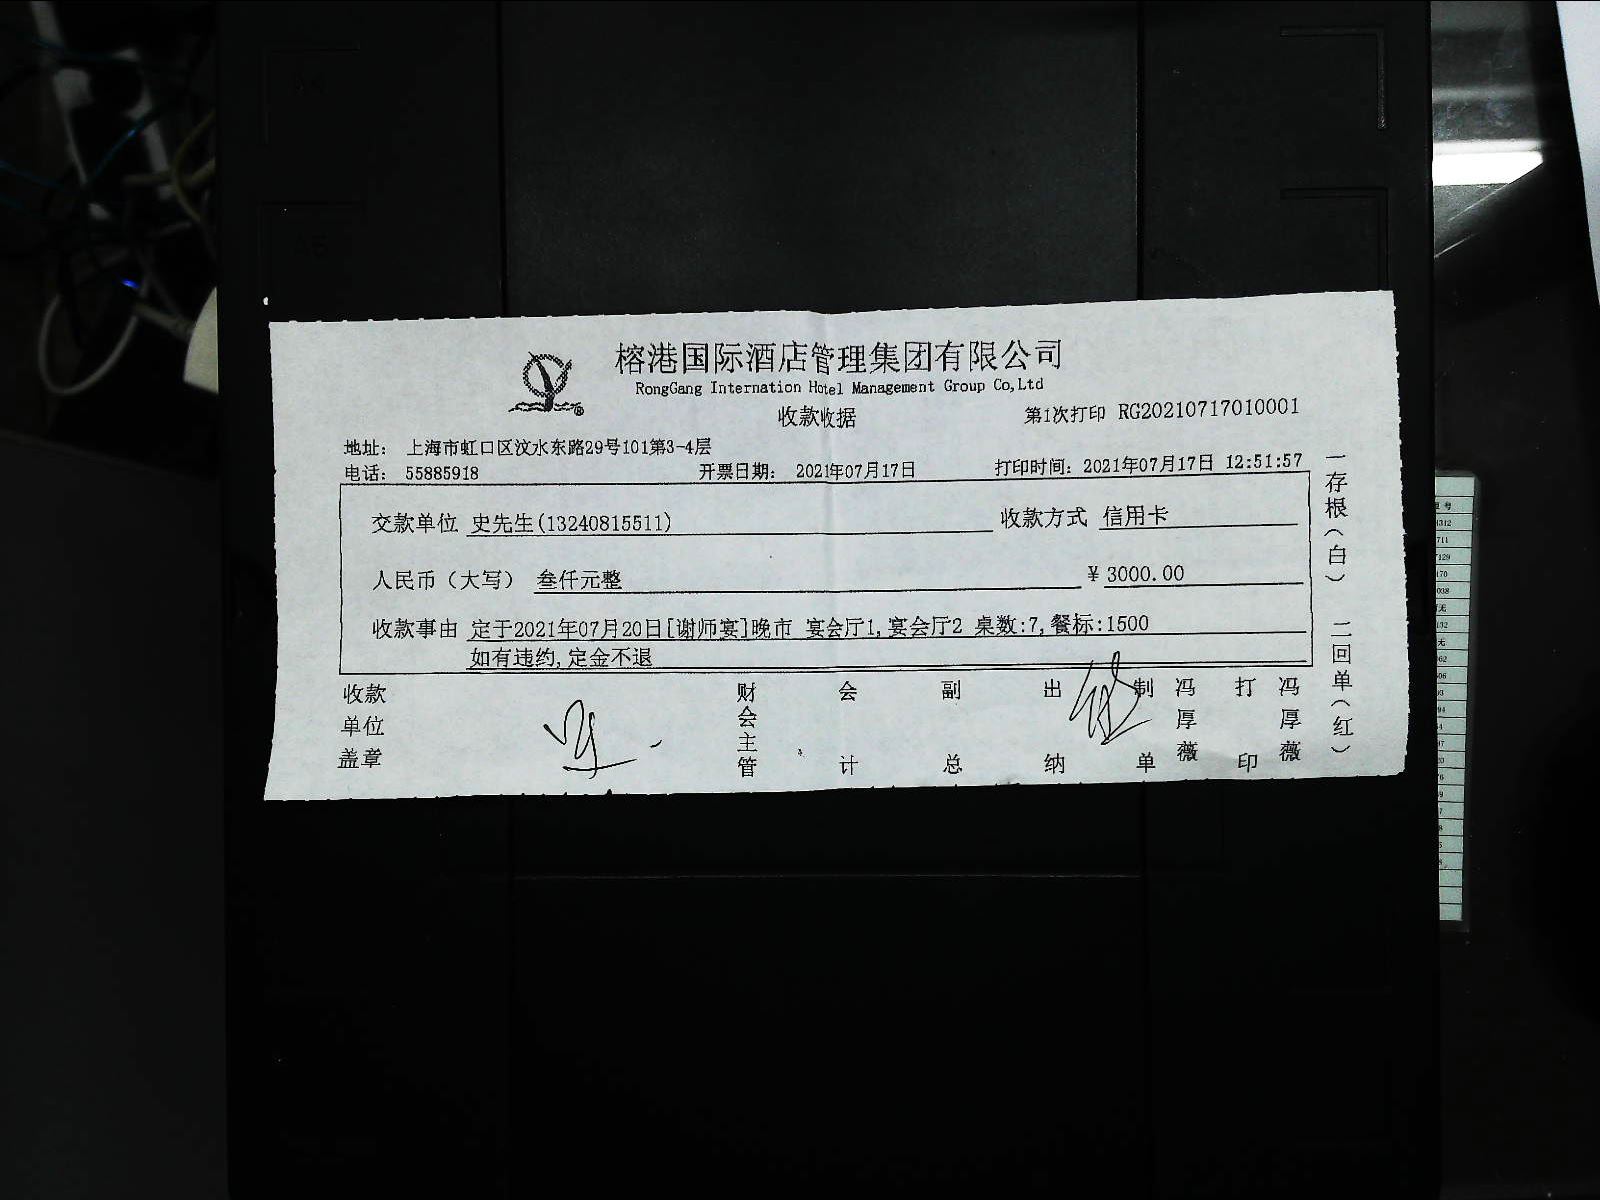 榕港国际酒店管理集团有限公司
RongGang Internation Hotel Management Group Co,Ltd
收款收据
第1次打印 RG20210717010001
地址: 上海市虹口区汶水东路29号101第3-4层
电话: 55885918 开票日期: 2021年07月17日 打印时间: 2021年07月17日 12:51:57
交款单位 史先生(13240815511) 收款方式 信用卡
人民币(大写) 叁仟元整 ¥3000.00
收款事由 定于2021年07月20日[谢师宴]晚市 宴会厅1,宴会厅2 桌数:7,餐标:1500
如有违约,定金不退
收款单位盖章
财会主管
会计
副总
出纳
制单
冯厚薇
打印
冯厚薇
一存根(白) 二回单(红)